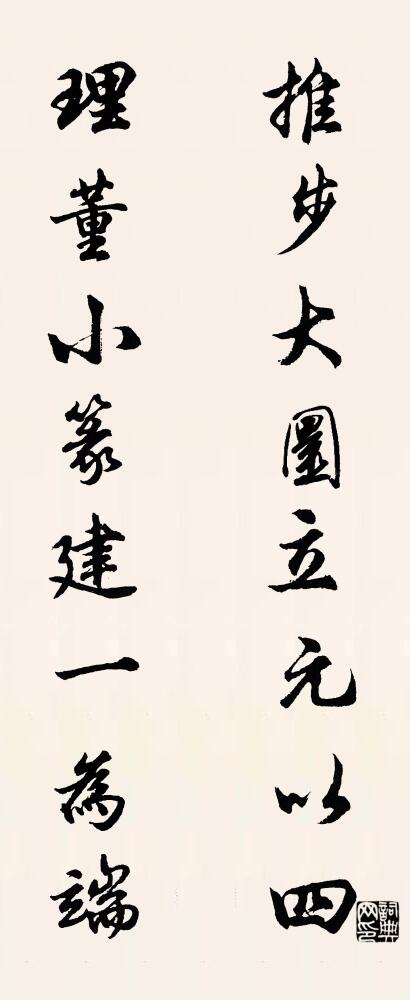 推步大圜立元以四
理董小篆建一為端
詞典
网印